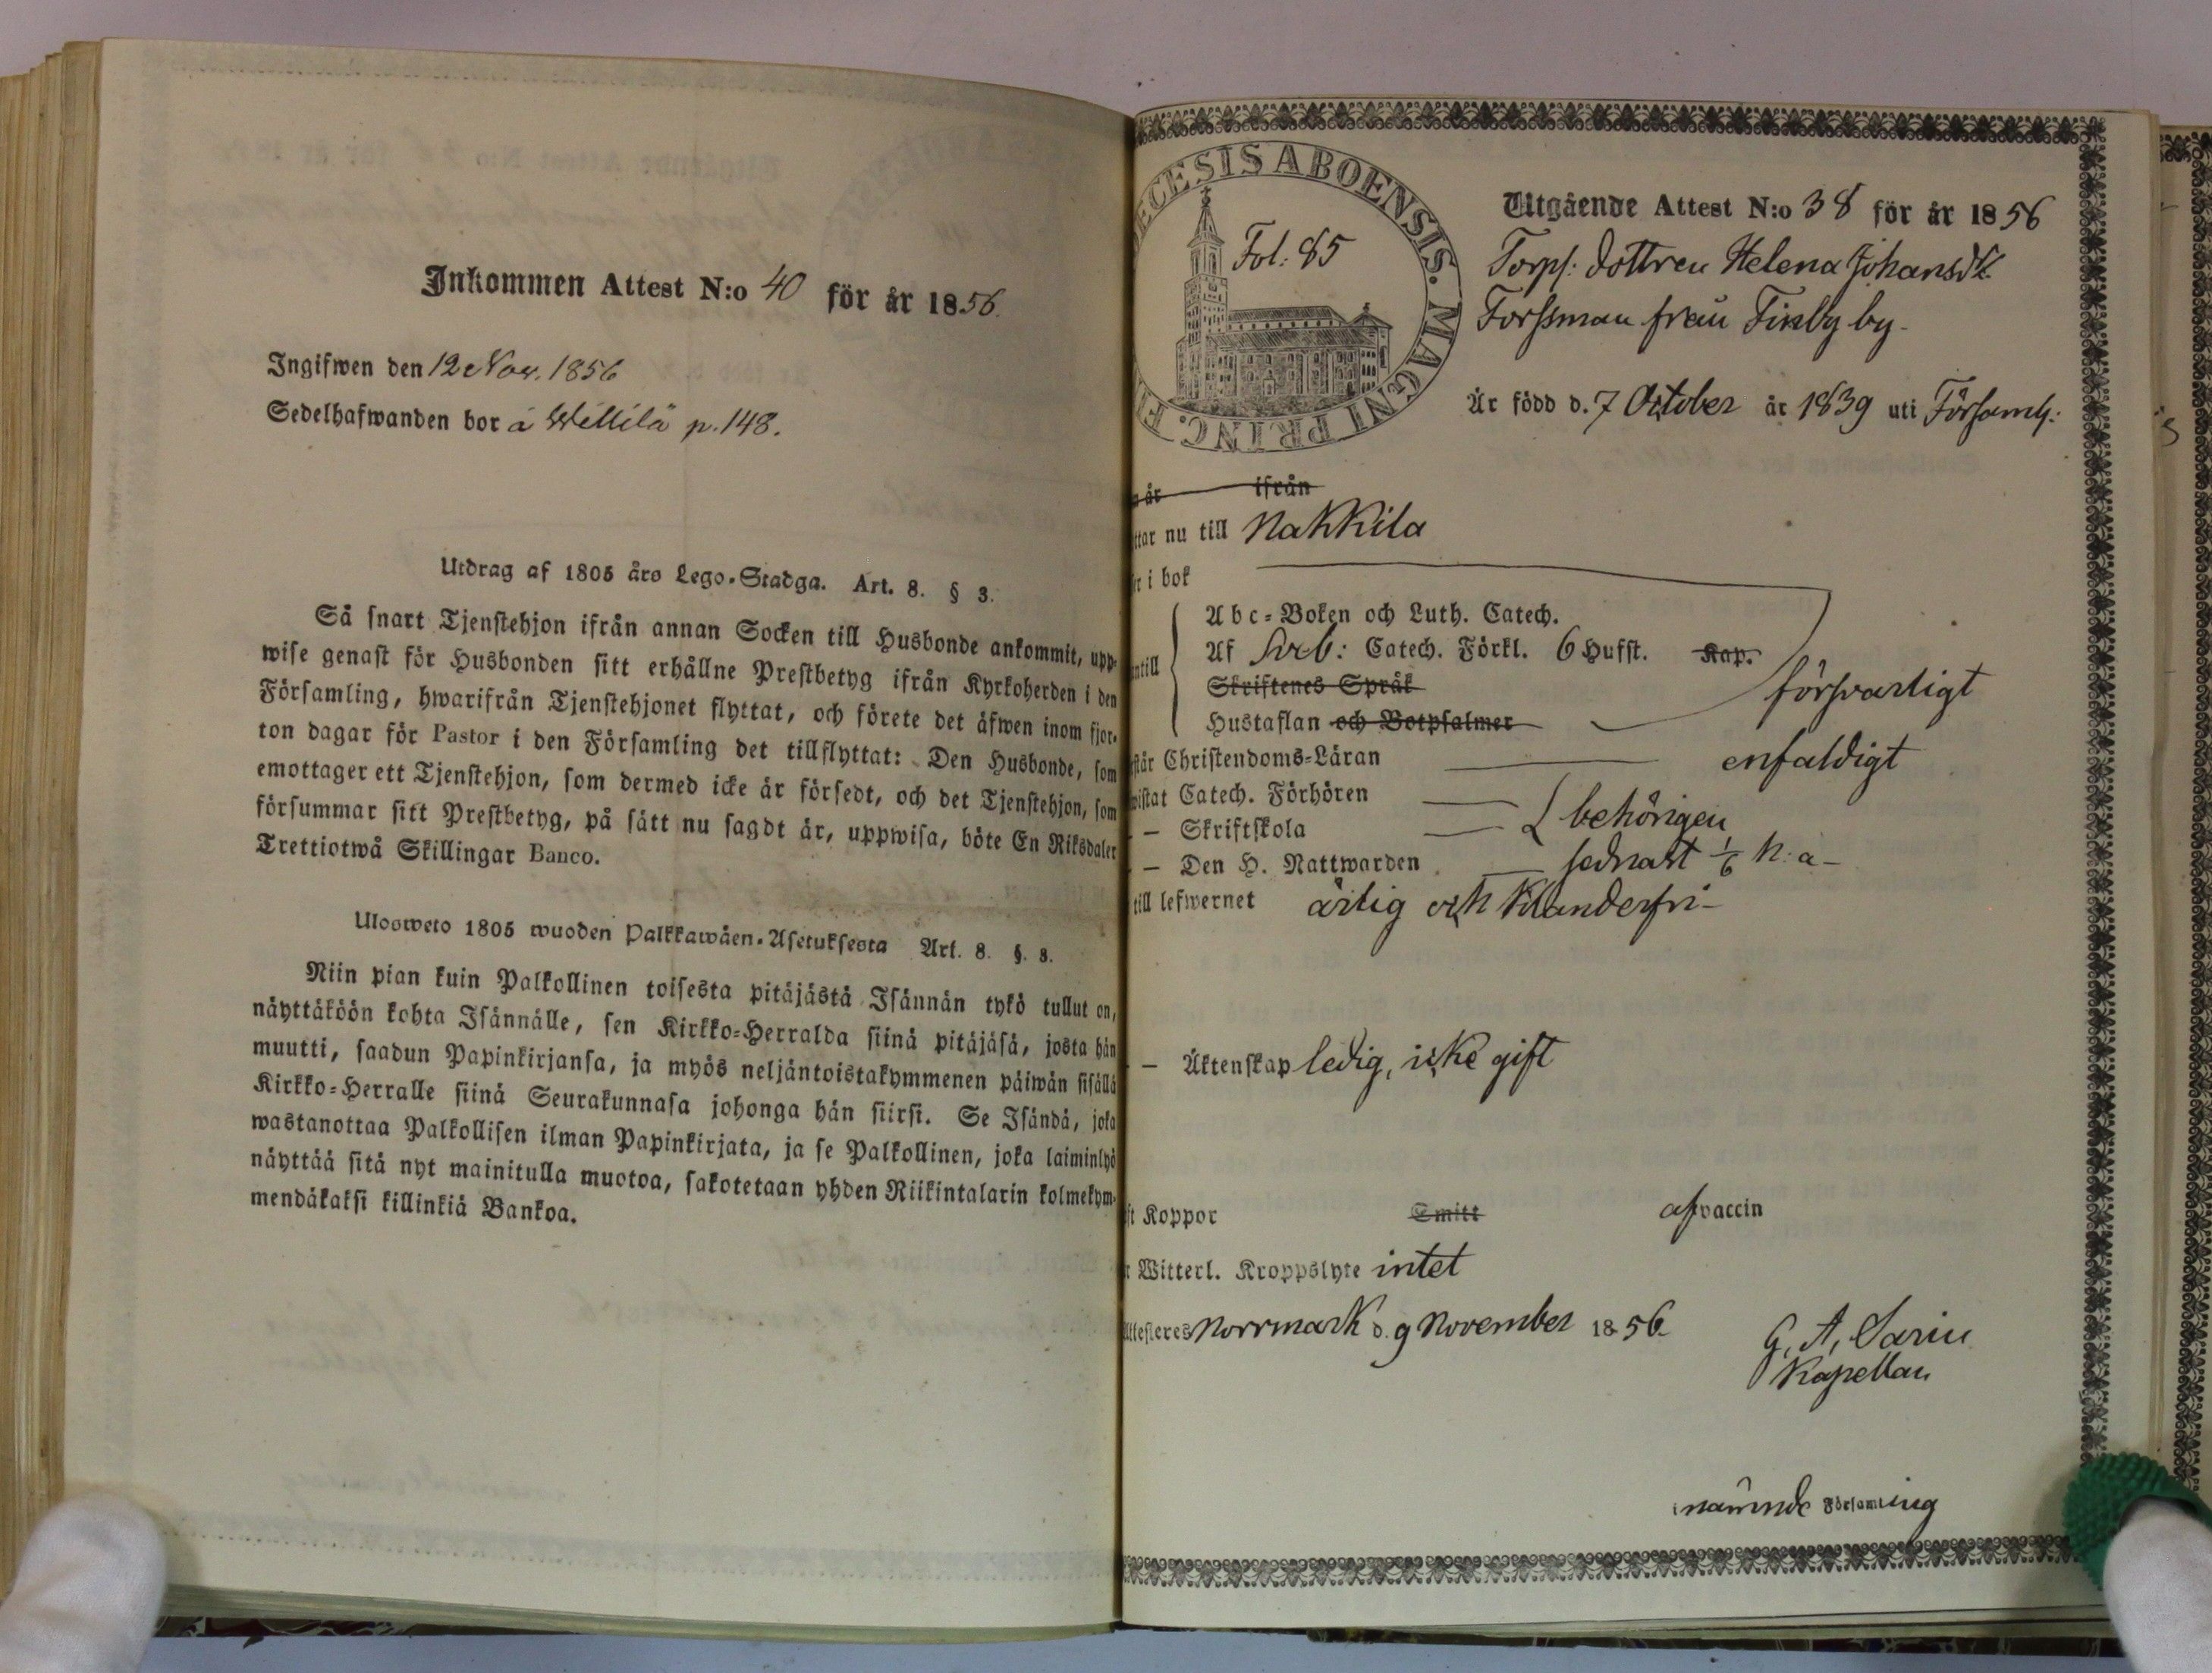 Inkommen Attest N:o 40 för år 1856.
Ingifwen den 12 Nov. 1856
Sedelhafwanden bor å Willilä p. 148.
Utdrag af 1805 års Lego-Stadga. Art. 8. § 3.
Så snart Tjenstehjon ifrån annan Socken till Husbonde ankommit, upp-
wise genast för Husbonden sitt erhållne Prestbetyg ifrån Kyrkoherden i den
Församling, hwarifrån Tjenstehjonet flyttat, och förete det äfwen inom fjor-
ton dagar för Pastor i den Församling det tillflyttat: Den Husbonde, som
emottager ett Tjenstehjon, som dermed icke är försedt, och det Tjenstehjon, som
försummar sitt Prestbetyg, på sätt nu sagdt är, uppwisa, böte En Riksdaler
Trettiotwå Skillingar Banco.
Ulosweto 1805 wuoden Palkkawäen-Asetuksesta Art. 8. §. 3.
Niin pian kuin Palkollinen toisesta pitäjästä Isännän tykö tullut on,
näyttäköön kohta Isännälle, sen Kirkko-Herralda siinä pitäjäsä, josta hän
muutti, saadun Papinkirjansa, ja myös neljäntoistakymmenen päiwän sisällä
Kirkko-Herralle siinä Seurakunnasa johonga hän siirsi. Se Isändä, joka
wastanottaa Palkollisen ilman Papinkirjata, ja se Palkollinen, joka laiminlyö
näyttää sitä nyt mainitulla muotoa, sakotetaan yhden Riikintalarin kolmekym-
mendäkaksi killinkiä Bankoa.
ECESIS ABOENSIS. MAGNI PRINC. F
Fol: 85
Utgående Attest N:o 38 för år 1856
Torp: dottren Helena Johansdt
Forssman från Finby by.
Är född d. 7 October år 1839 uti Församl:
år ifrån
ttar nu till Nakkila
i bok
Abc-Boken och Luth. Catech.
Af Sveb: Catech. Förkl. 6 Hufst. Kap.
ntill
Skriftenes Språk
försvarligt
Hustaflan och Botpsalmer
står Christendoms-Läran enfaldigt
wistat Catech. Förhören
behörigen
— Skriftskola
— Den H. Nattwarden sednast 1/6 h: a-
till lefwernet ärlig och klanderfri-
— Äktenskap ledig, icke gift
ft Koppor Smitt af vaccin
Witterl. Kroppslyte intet
Attesteres Norrmark d. 9 November 1856.
G. A. Sarin
Kapellan
i nämnde Församling